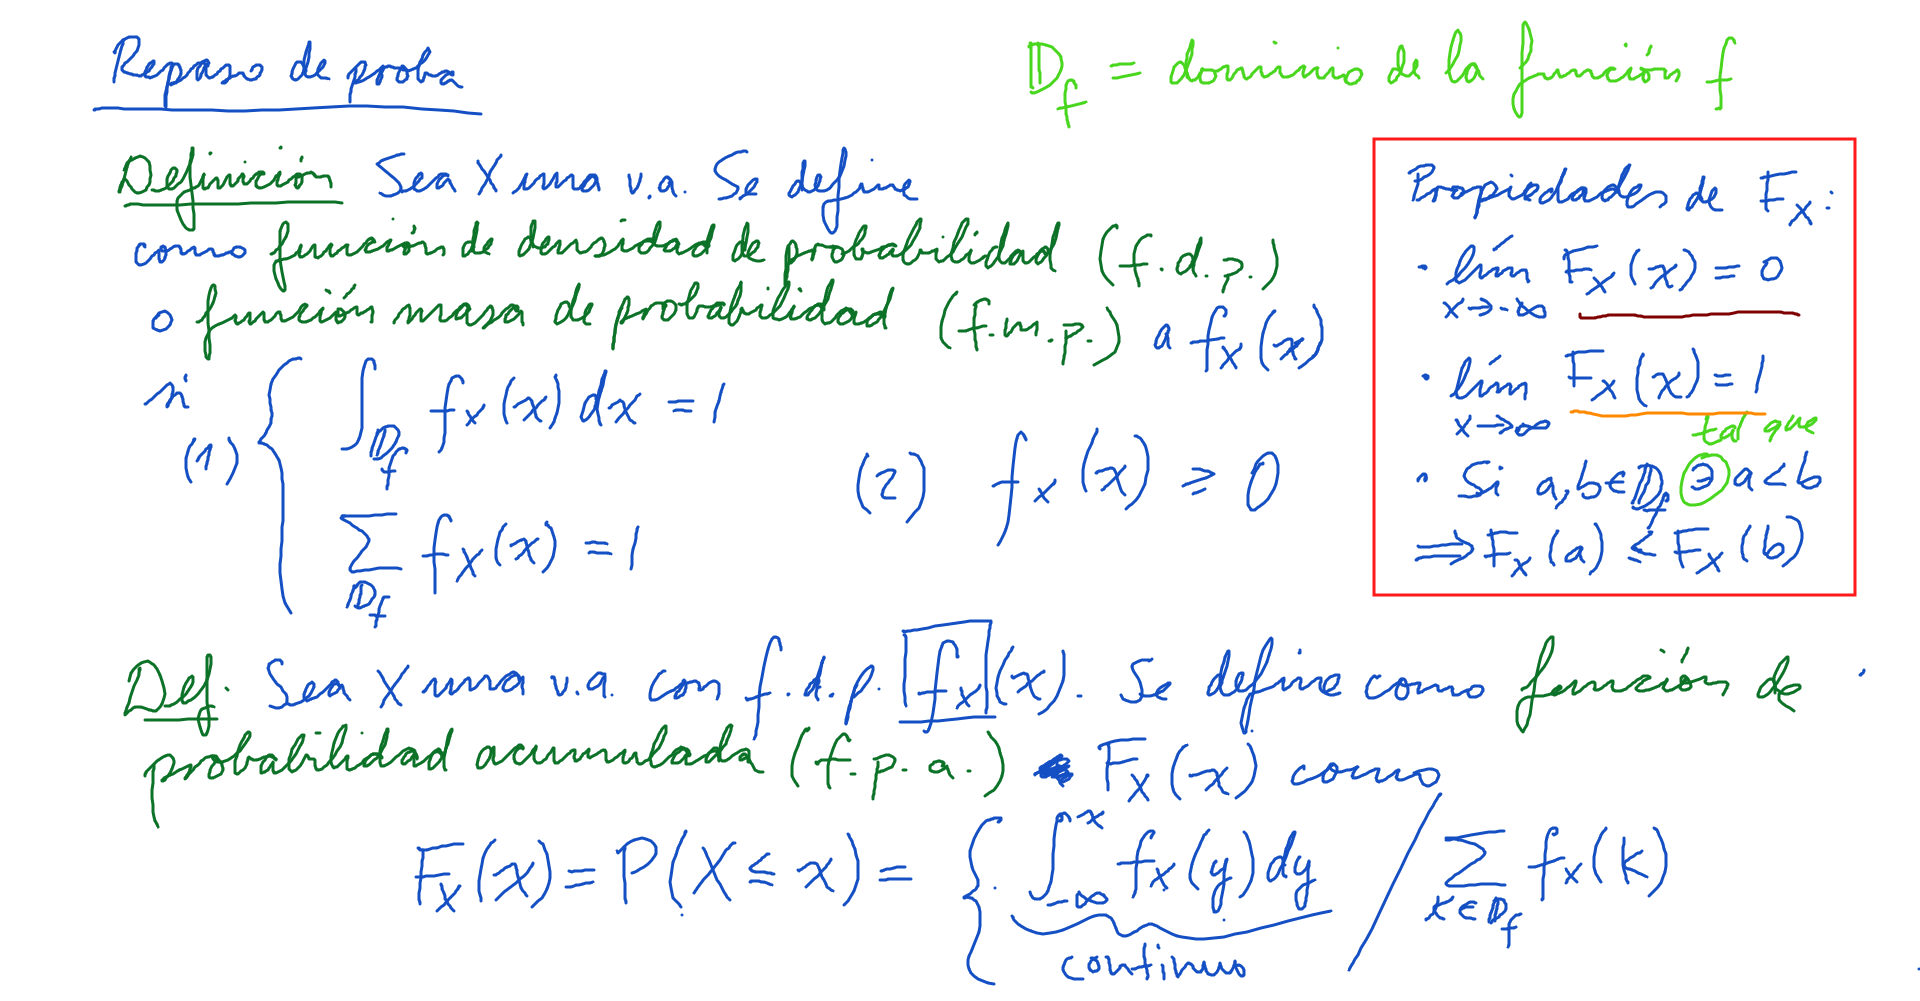 Repaso de proba
𝔻_f = dominio de la función f
Definición Sea X una v.a. Se define
como función de densidad de probabilidad (f.d.p.)
o función masa de probabilidad (f.m.p.) a f_X(x)
si
(1) { ∫_{𝔻_f} f_X(x) dx = 1
∑_{𝔻_f} f_X(x) = 1
(2) f_X(x) ≥ 0
Propiedades de F_X:
· lím_{x→-∞} F_X(x) = 0
· lím_{x→∞} F_X(x) = 1
tal que
· Si a, b ∈ 𝔻_f ∋ a < b
⟹ F_X(a) ≤ F_X(b)
Def. Sea X una v.a. con f.d.p. f_X(x). Se define como función de
probabilidad acumulada (f.p.a.) F_X(x) como
F_X(x) = P(X ≤ x) = { ∫_{-∞}^{x} f_X(y) dy / ∑_{K∈𝔻_f} f_X(k)
continuo